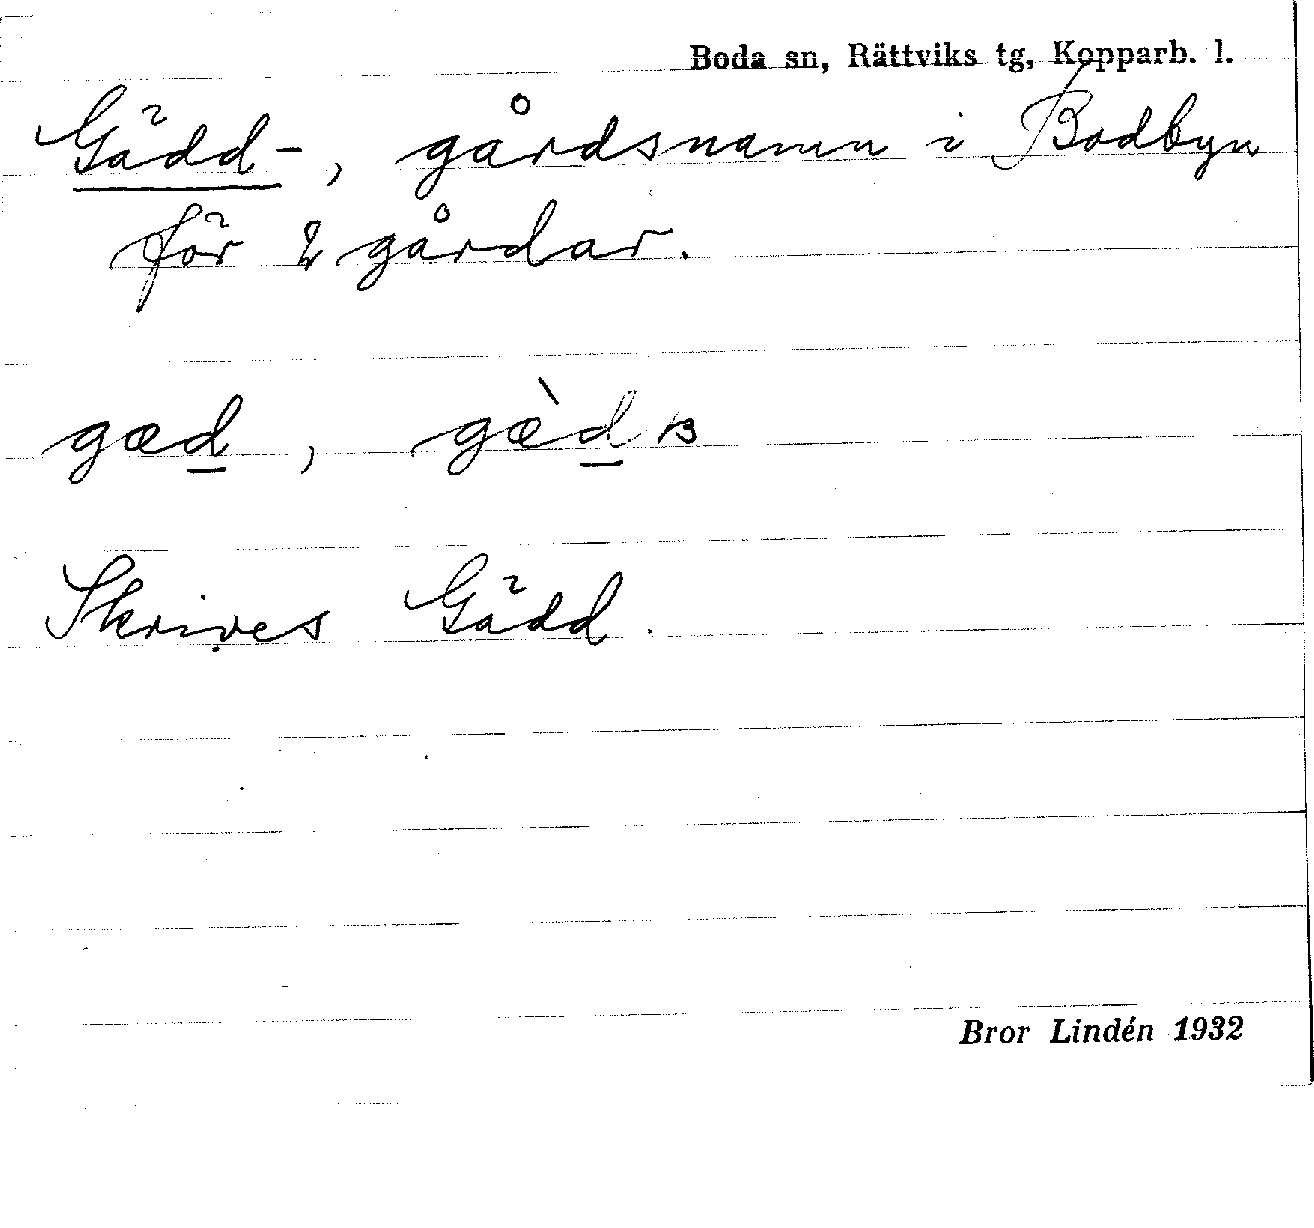 Boda sn, Rättviks tg, Kopparb. l.
Gädd-, gårdsnamn i Bodbyn
för 2 gårdar.
gæd,
Skrives Gädd.
Bror Lindén 1932